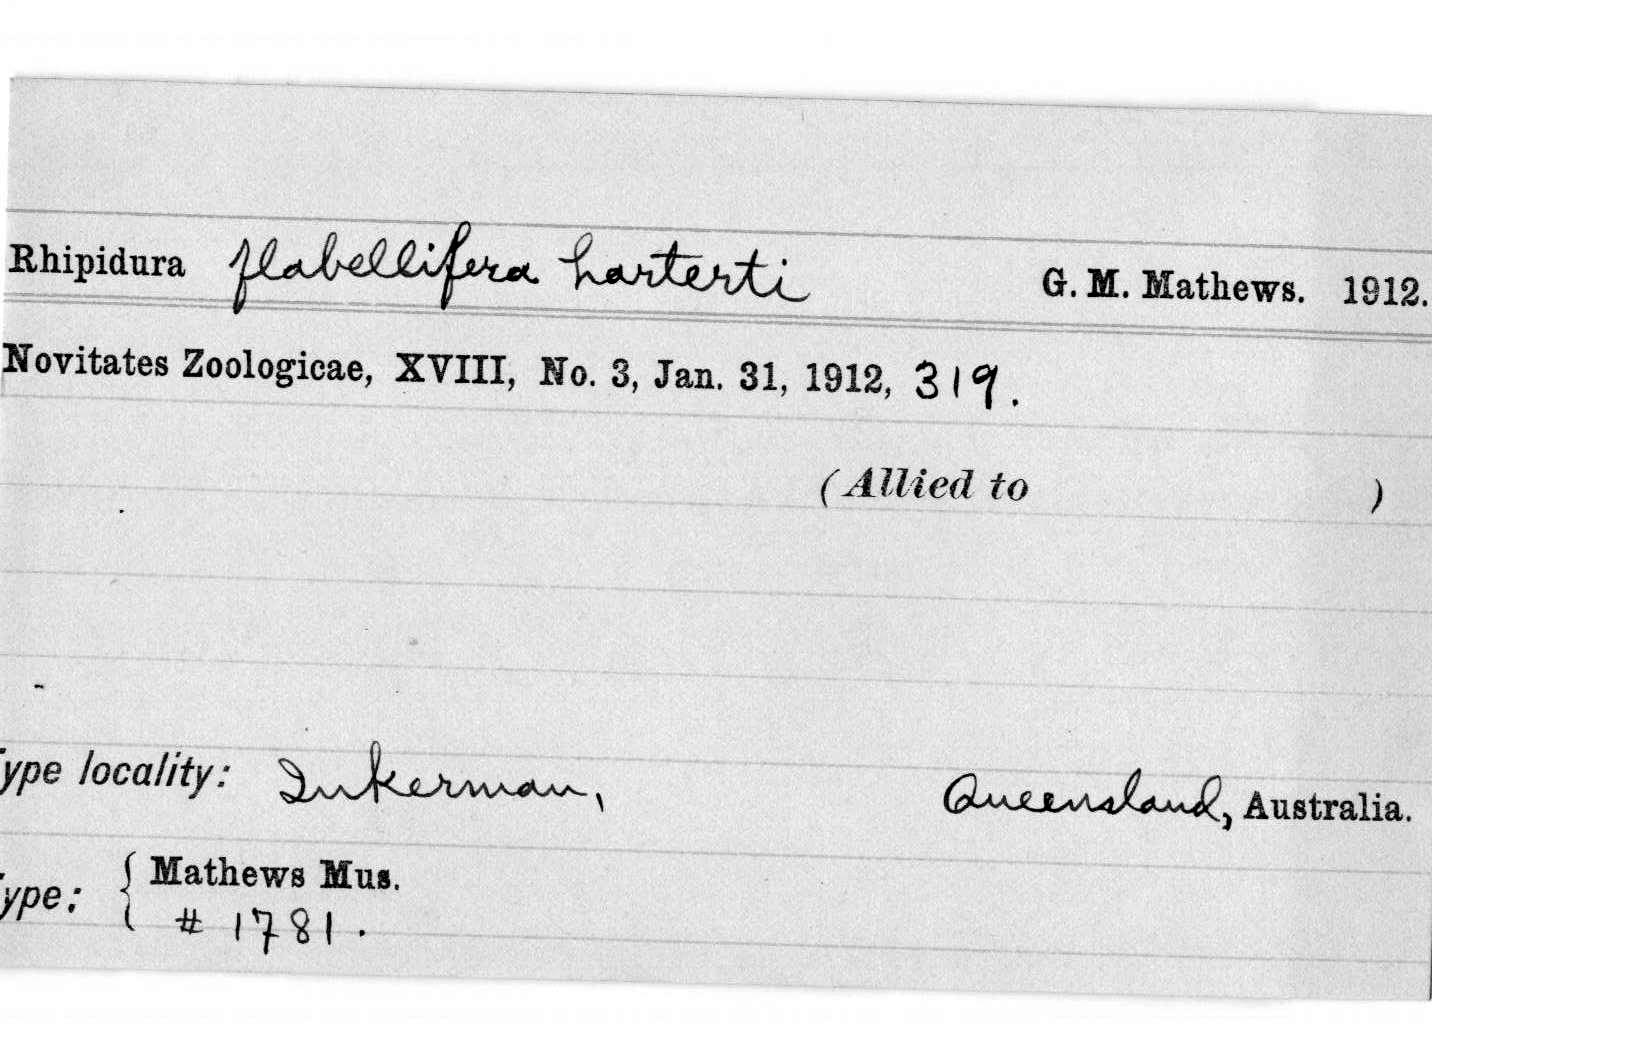 Rhipidura flabellifera harterti G. M. Mathews. 1912.
Novitates Zoologicae, XVIII, No. 3, Jan. 31, 1912, 319.
(Allied to )
ype locality: Inkerman, Queensland, Australia.
ype: { Mathews Mus.
# 1781.